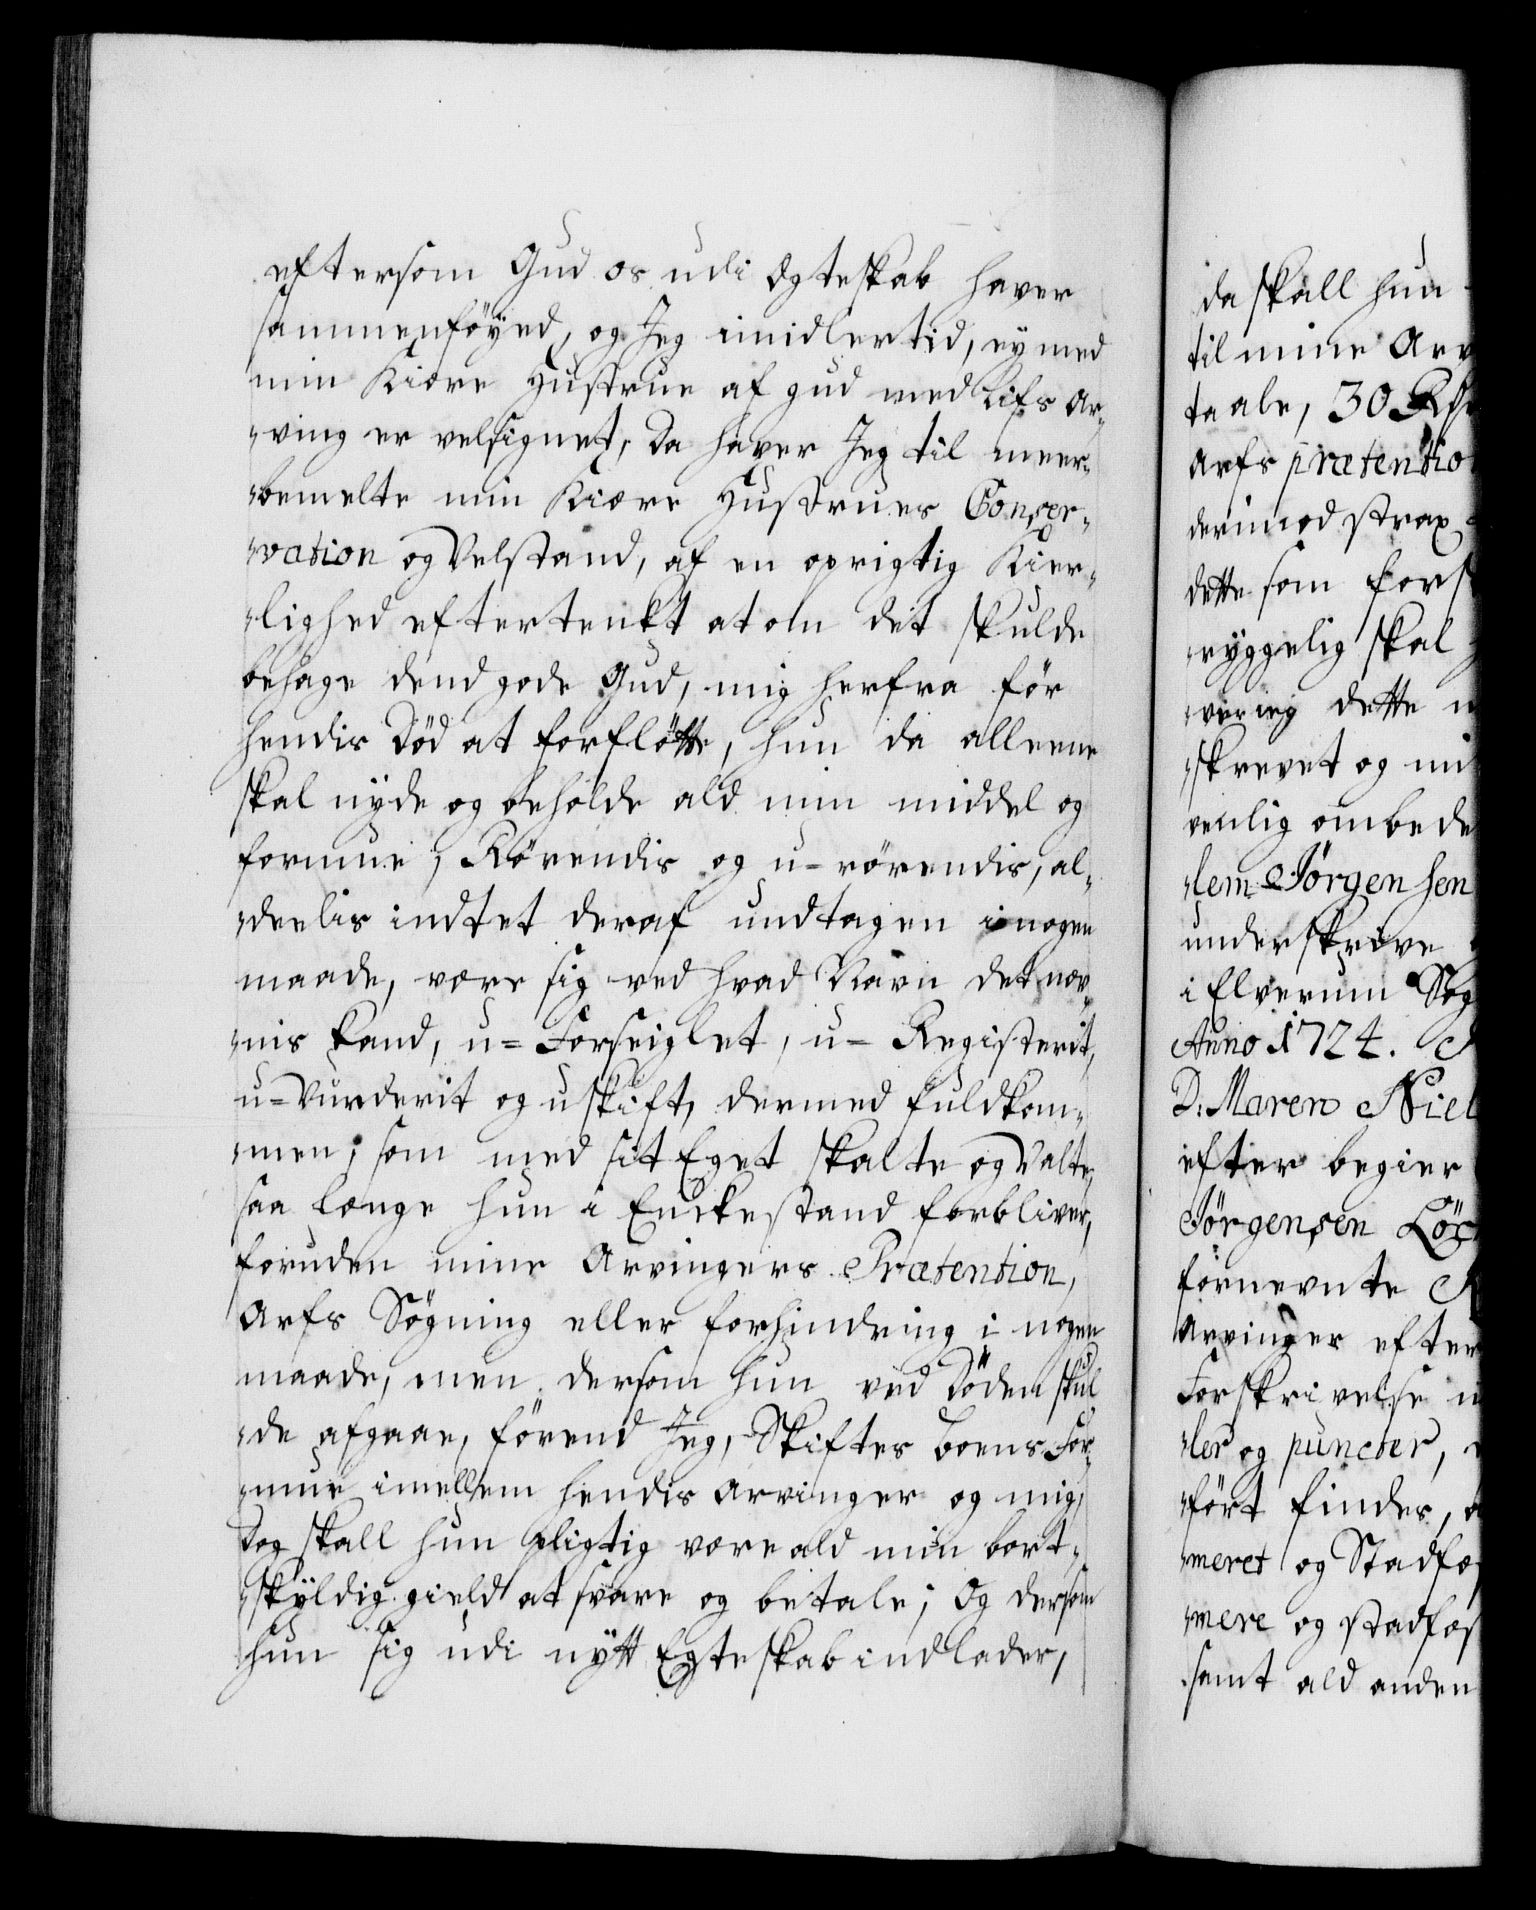 eftersom Gud os udi Egteskab haver
sammenföÿed, og Jeg imidlertid, eÿ med
min Kiære Hustrue af gud med Lifs Ar„
„ving er velsignet, Da haver Jeg til meer„
„bemelte min Kiære Hustrues Conser„
„vation og Velstand, af en oprigtig Kier„
„lighed eftertenkt at om det skulde
behage dend gode Gud, mig herfra för
hendis Död at forflötte, hun da alleene
skal nÿde og beholde ald min middel og
formue, Rörendis og u-rörendis, al„
„deelis indtet deraf undtagen i nogen
maade, være sig ved hvad Navn det nev„
„nis kand, u=Forseiglet, u-Registerit,
u=Vurderit og uskift, dermed fuldkom„
„men, som med sit Eget skalte og Valte,
saa længe hun i Enckestand forbliver,
foruden mine Arvingers Prætention,
Arfs Sögning eller forhindring i nogen
maade, men dersom hun ved Döden skul
„de afgaae, förend Jeg, Skiftes Boens For„
„mue imellem hendis arvinger og mig,
Dog skall hun pligtig være ald min bort„
„skÿldig gield at svare og betale; Og dersom
hun sig udi nÿtt Egteskab indlader,
da skall hun
til mine Arv
taale, 30 R
Arfs prætentio
derimod strax
dette som forsk
„rÿggelig skal
„vering dette
„skrevet og
venlig ombede
„lem Jörgensen
underskrive
i Elverum Sog
Anno 1724.
D: Maren Niel
efter begier
Jörgensen Lör
fornevnte
Arvinger efter
Forskrivelse
„ler og puncter,
„fört findes,
„meret og Stadfæ
„mere og stadfæs
samt ald anden